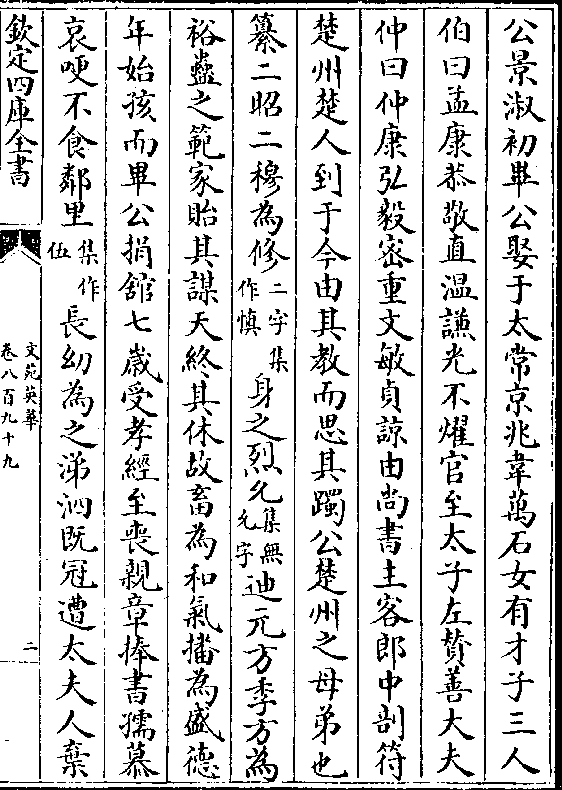 公景淑初畢公娶于太常京兆韋萬石女有才子三人
伯曰孟康恭敬直温謙光不燿官至太子左贊善大夫
仲曰仲康弘毅密重文敏貞諒由尚書主客郎中剖符
楚州楚人到于今由其教而思其躅公楚州之母弟也
纂二昭二穆為修二字集作慎身之烈允集無允字迪元方季方為
裕蠱之範家貽其謀天終其休故畜為和氣播為盛德
年始孩而畢公捐舘七歳受孝經至喪親章捧書孺慕
哀哽不食鄰里集作伍長幼為之涕泗既冠遭太夫人棄
欽定四庫全書
文苑英華
卷八百九十九
二